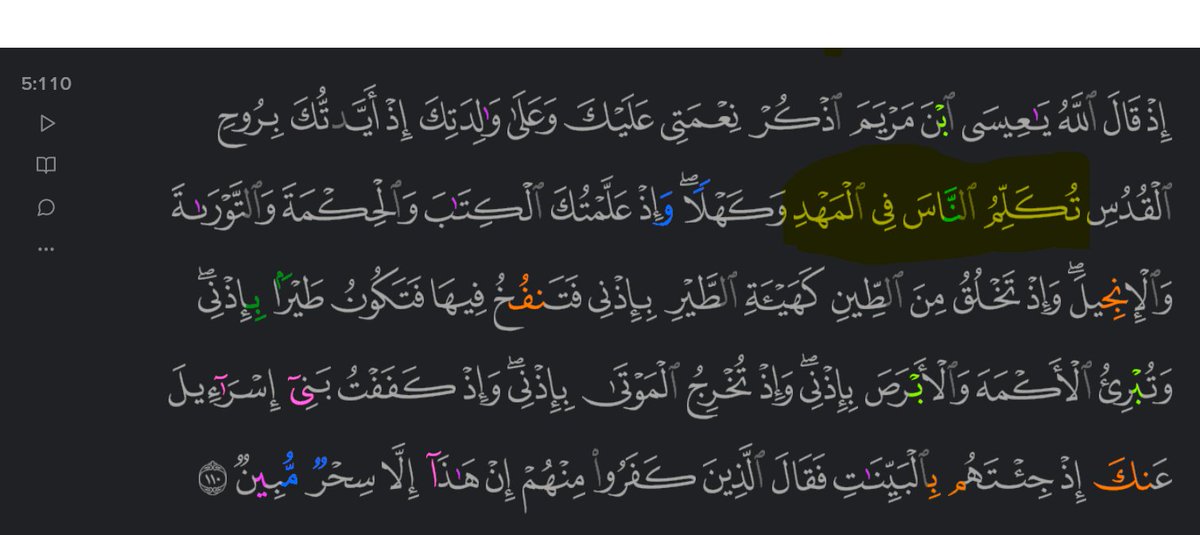 5:110
إِذْ قَالَ ٱللَّهُ يَـٰعِيسَى ٱبْنَ مَرْيَمَ ٱذْكُرْ نِعْمَتِى عَلَيْكَ وَعَلَىٰ وَٰلِدَتِكَ إِذْ أَيَّدتُّكَ بِرُوحِ
ٱلْقُدُسِ تُكَلِّمُ ٱلنَّاسَ فِى ٱلْمَهْدِ وَكَهْلًا ۖ وَإِذْ عَلَّمْتُكَ ٱلْكِتَـٰبَ وَٱلْحِكْمَةَ وَٱلتَّوْرَىٰةَ
وَٱلْإِنجِيلَ ۖ وَإِذْ تَخْلُقُ مِنَ ٱلطِّينِ كَهَيْـَٔةِ ٱلطَّيْرِ بِإِذْنِى فَتَنفُخُ فِيهَا فَتَكُونُ طَيْرًۢا بِإِذْنِى ۖ
وَتُبْرِئُ ٱلْأَكْمَهَ وَٱلْأَبْرَصَ بِإِذْنِى ۖ وَإِذْ تُخْرِجُ ٱلْمَوْتَىٰ بِإِذْنِى ۖ وَإِذْ كَفَفْتُ بَنِىٓ إِسْرَٰٓءِيلَ
عَنكَ إِذْ جِئْتَهُم بِٱلْبَيِّنَـٰتِ فَقَالَ ٱلَّذِينَ كَفَرُوا۟ مِنْهُمْ إِنْ هَـٰذَآ إِلَّا سِحْرٌ مُّبِينٌ ١١٠